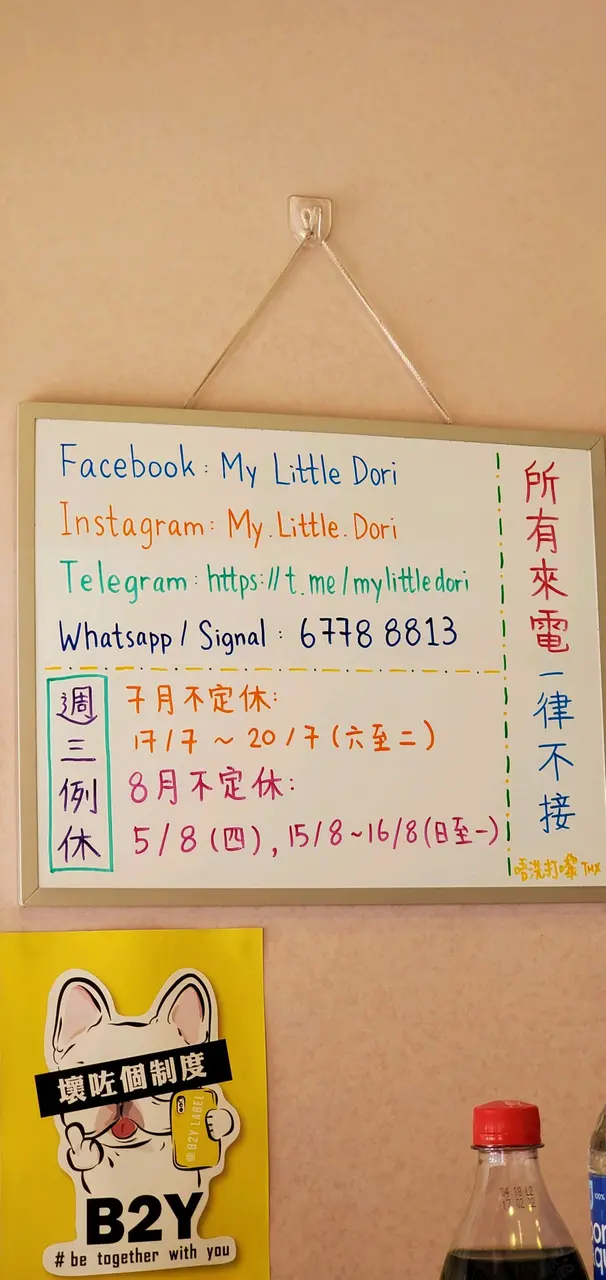 Facebook: My Little Dori
Instagram: My.Little.Dori
Telegram: https://t.me/mylittledori
Whatsapp / Signal : 6778 8813
週三例休
7月不定休:
17/7 ~ 20/7 (六至二)
8月不定休:
5/8 (四), 15/8~16/8(日至一)
所有來電一律不接
唔洗打嚟 THX
壞咗個制度
@B2Y LABEL
B2Y
# be together with you